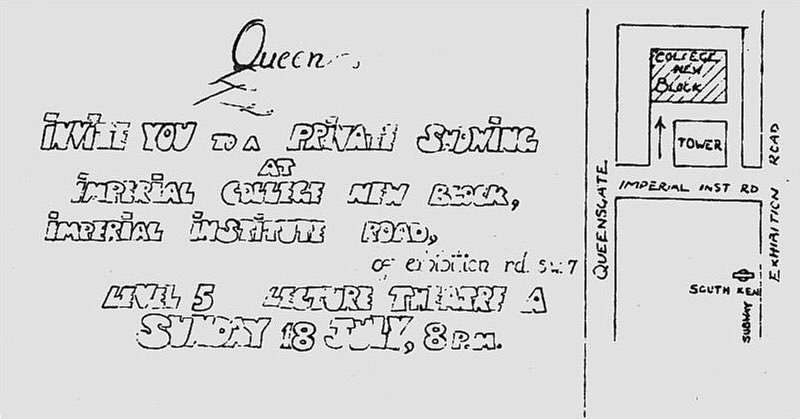 Queen
INVITE YOU TO A PRIVATE SHOWING
AT
IMPERIAL COLLEGE NEW BLOCK,
IMPERIAL INSTITUTE ROAD,
of exhibition rd. sw7
LEVEL 5 LECTURE THEATRE A
SUNDAY 18 JULY, 8 P.M.
COLLEGE
NEW
BLOCK
TOWER
IMPERIAL INST RD
QUEENSGATE
EXHIBITION ROAD
SOUTH KEN
SUBWAY